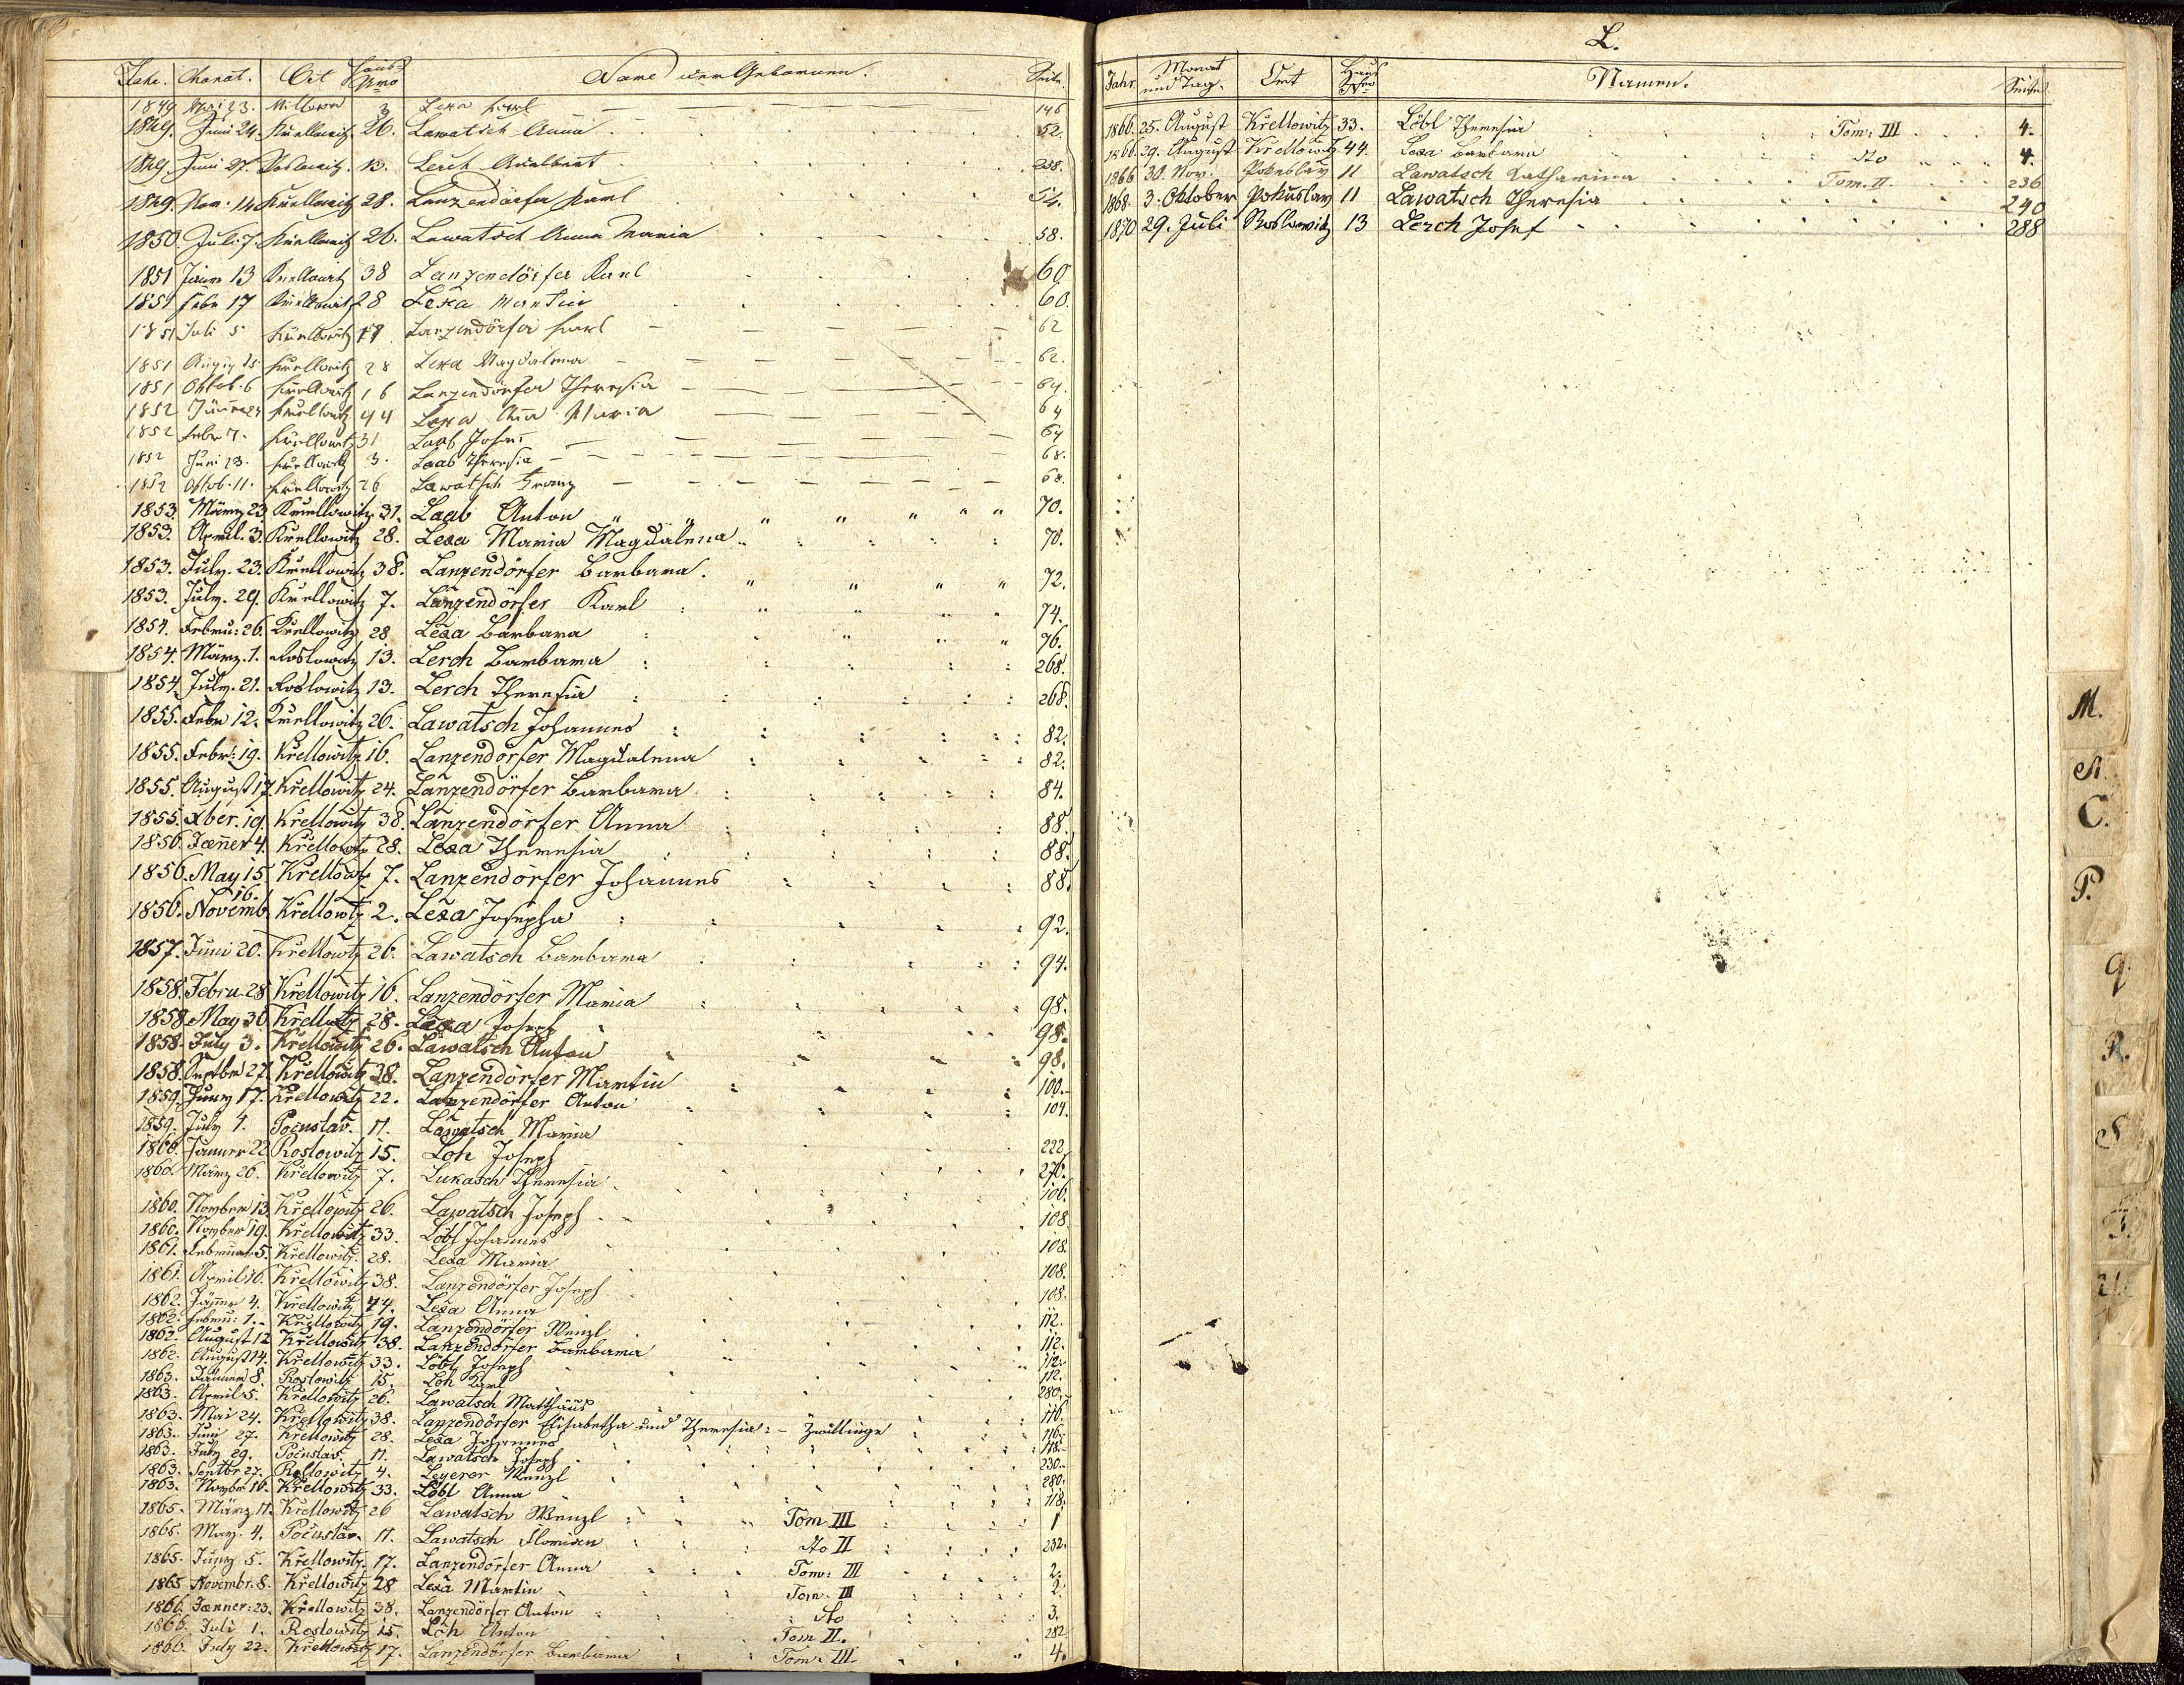 Jahr. Monat. Ort Haus Nro Name der Gebornen. Seite.
1849 Mai 23. 3 Lexa Karl 146
1849. Juni 24. Křellowitz 26. Lawatsch Anna 52.
1849. Juni 27. Roslowitz 13. Lerch Adalbert 258.
1849. Nov. 14 Křellowitz 28. Lanzendörfer Karl 54.
1850. Juli 7. Křellowitz 26. Lawatsch Anna Maria 58.
1851 Jänner 13 Křellowitz 38 Lanzendörfer Karl 60
1851 Febr 17 Křellowitz 28 Lexa Martin 60.
1851 Juli 5 Křellowitz 17 Lanzendörfer Karl 62
1851 Augu 15 Křellowitz 28 Lexa Magdalena 62.
1851 Oktob. 6 Křellowitz 16 Lanzendörfer Theresia 64.
1852 Jänner 24 Křellowitz 44 Lexa Ana Maria 64
1852 Febr 7. Křellowitz 31 Laab Josef 64
1852 Juni 23. Křellowitz 3. Laab Theresia 68.
1852 Oktob. 11. Křellowitz 26 Lawatsch Franz 68.
1853. März 23 Křellowitz 31. Laab Anton 70.
1853. April. 3. Křellowitz 28. Lexa Maria Magdalena 70.
1853. July. 23. Křellowitz 38. Lanzendörfer Barbara. 72.
1853. July. 29. Křellowitz 7. Lanzendörfer Karl 74.
1854. Febru: 26. Křellowitz 28 Lexa Barbara 76.
1854. März. 1. Roslowitz 13. Lerch Barbara 268.
1854. July. 21. Roslowitz 13. Lerch Theresia 268.
1855. Febr 12. Křellowitz 26. Lawatsch Johannes 82.
1855. Febr: 19. Křellowitz 16. Lanzendörfer Magdalena 82.
1855. August 17. Křellowitz 24. Lanzendörfer Barbara 84.
1855. Xber. 19. Křellowitz 38. Lanzendörfer Anna 88.
1856. Jænner 4. Křellowitz 28. Lexa Theresia 88.
1856. May 15 Křellowtz 7. Lanzendörfer Johannes 88.
1856. Novemb. 16. Křellowtz 2. Lexa Josepha 92.
1857. Juni 20. Křellowtz 26. Lawatsch Barbara 94.
1858. Febru. 28 Křellowitz 16. Lanzendörfer Maria 98.
1858. May 30 Křellowitz 28. Lexa Joseph 98.
1858. July 3. Křellowitz 26. Lawatsch Anton 98.
1858. Septbr 27. Křellowitz 38. Lanzendörfer Martin 100.
1859. Juny 17. Křellowitz 22. Lanzendörfer Anton 104.
1859. July 4. Počuslav. 11. Lawatsch Maria 222
1860. Jänner 22 Roslowitz 15. Loh Joseph 276.
1860 März 26. Křellowitz 7. Lukasch Theresia 106.
1860. Novber 13. Křellowitz 26. Lawatsch Joseph 108.
1860. Novber 19. Křellowitz 33. Löbl Johannes 108.
1861. Februar. 5. Křellowitz. 28. Lexa Maria 108.
1861. April 10. Křellowitz 38. Lanzendörfer Joseph 108.
1862. Jänner 4. Křellowitz 44. Lexa Anna 112.
1862. Febru: 1. Křellowitz 19. Lanzendörfer Wenzl 112.
1862. August 12 Křellowitz 38. Lanzendörfer Barbara 112.
1862. August 14. Křellowitz 33. Löbl Joseph 112.
1863. Jänner 8. Roslowitz 15. Loh Karl 280.
1863. April 5. Křellowitz 26. Lawatsch Matthäus 116.
1863. Mai 24. Křellowitz 38. Lanzendörfer Elisabetha und Theresia: - Zwillinge 116.
1863. Juni 27. Křellowitz 28. Lexa Johannes 118.
1863. July 29. Počuslav. 11. Lawatsch Joseph 230.
1863. Septbr 27. Roslowitz 4. Leyerer Wenzl 280.
1863. Novbr 16. Křellowitz 33. Löbl Anna 118.
1865. März 11. Křellowitz 26 Lawatsch Wenzl Tom III 1
1865. May. 4. Počuslav. 11. Lawatsch dto II 232.
1865. Juny 5. Křellowitz. 17. Lanzendörfer Anna Tom: III 2.
1865 Novembr. 8. Křellowitz 28 Lexa Martin Tom. III 2.
1866. Jænner: 23. Křellowitz 38. Lanzendörfer Anton dto 3.
1866. Juli 1. Roslowitz 15. Loh Anton Tom II. 282
1866. July 22. Křellowitz 17. Lanzendörfer Barbara Tom: III. 4.
L.
Jahr. Monat und Tag. Ort Haus Nro Namen. Seite
1866. 25. August Křellowitz 33. Löbl Theresia Tom: III 4.
1866. 29. August Křellowitz 44. Lexa Barbara dto 4.
1866 30. Nov. Pokuslav 11 Lawatsch Katharina Tom. II. 236
1868. 3. Oktober Pokuslav 11 Lawatsch Theresia 240
1870 29. Juli Roslowitz 13 Lerch Josef 288
M.
N.
C.
P.
q.
R.
S
T.
U.